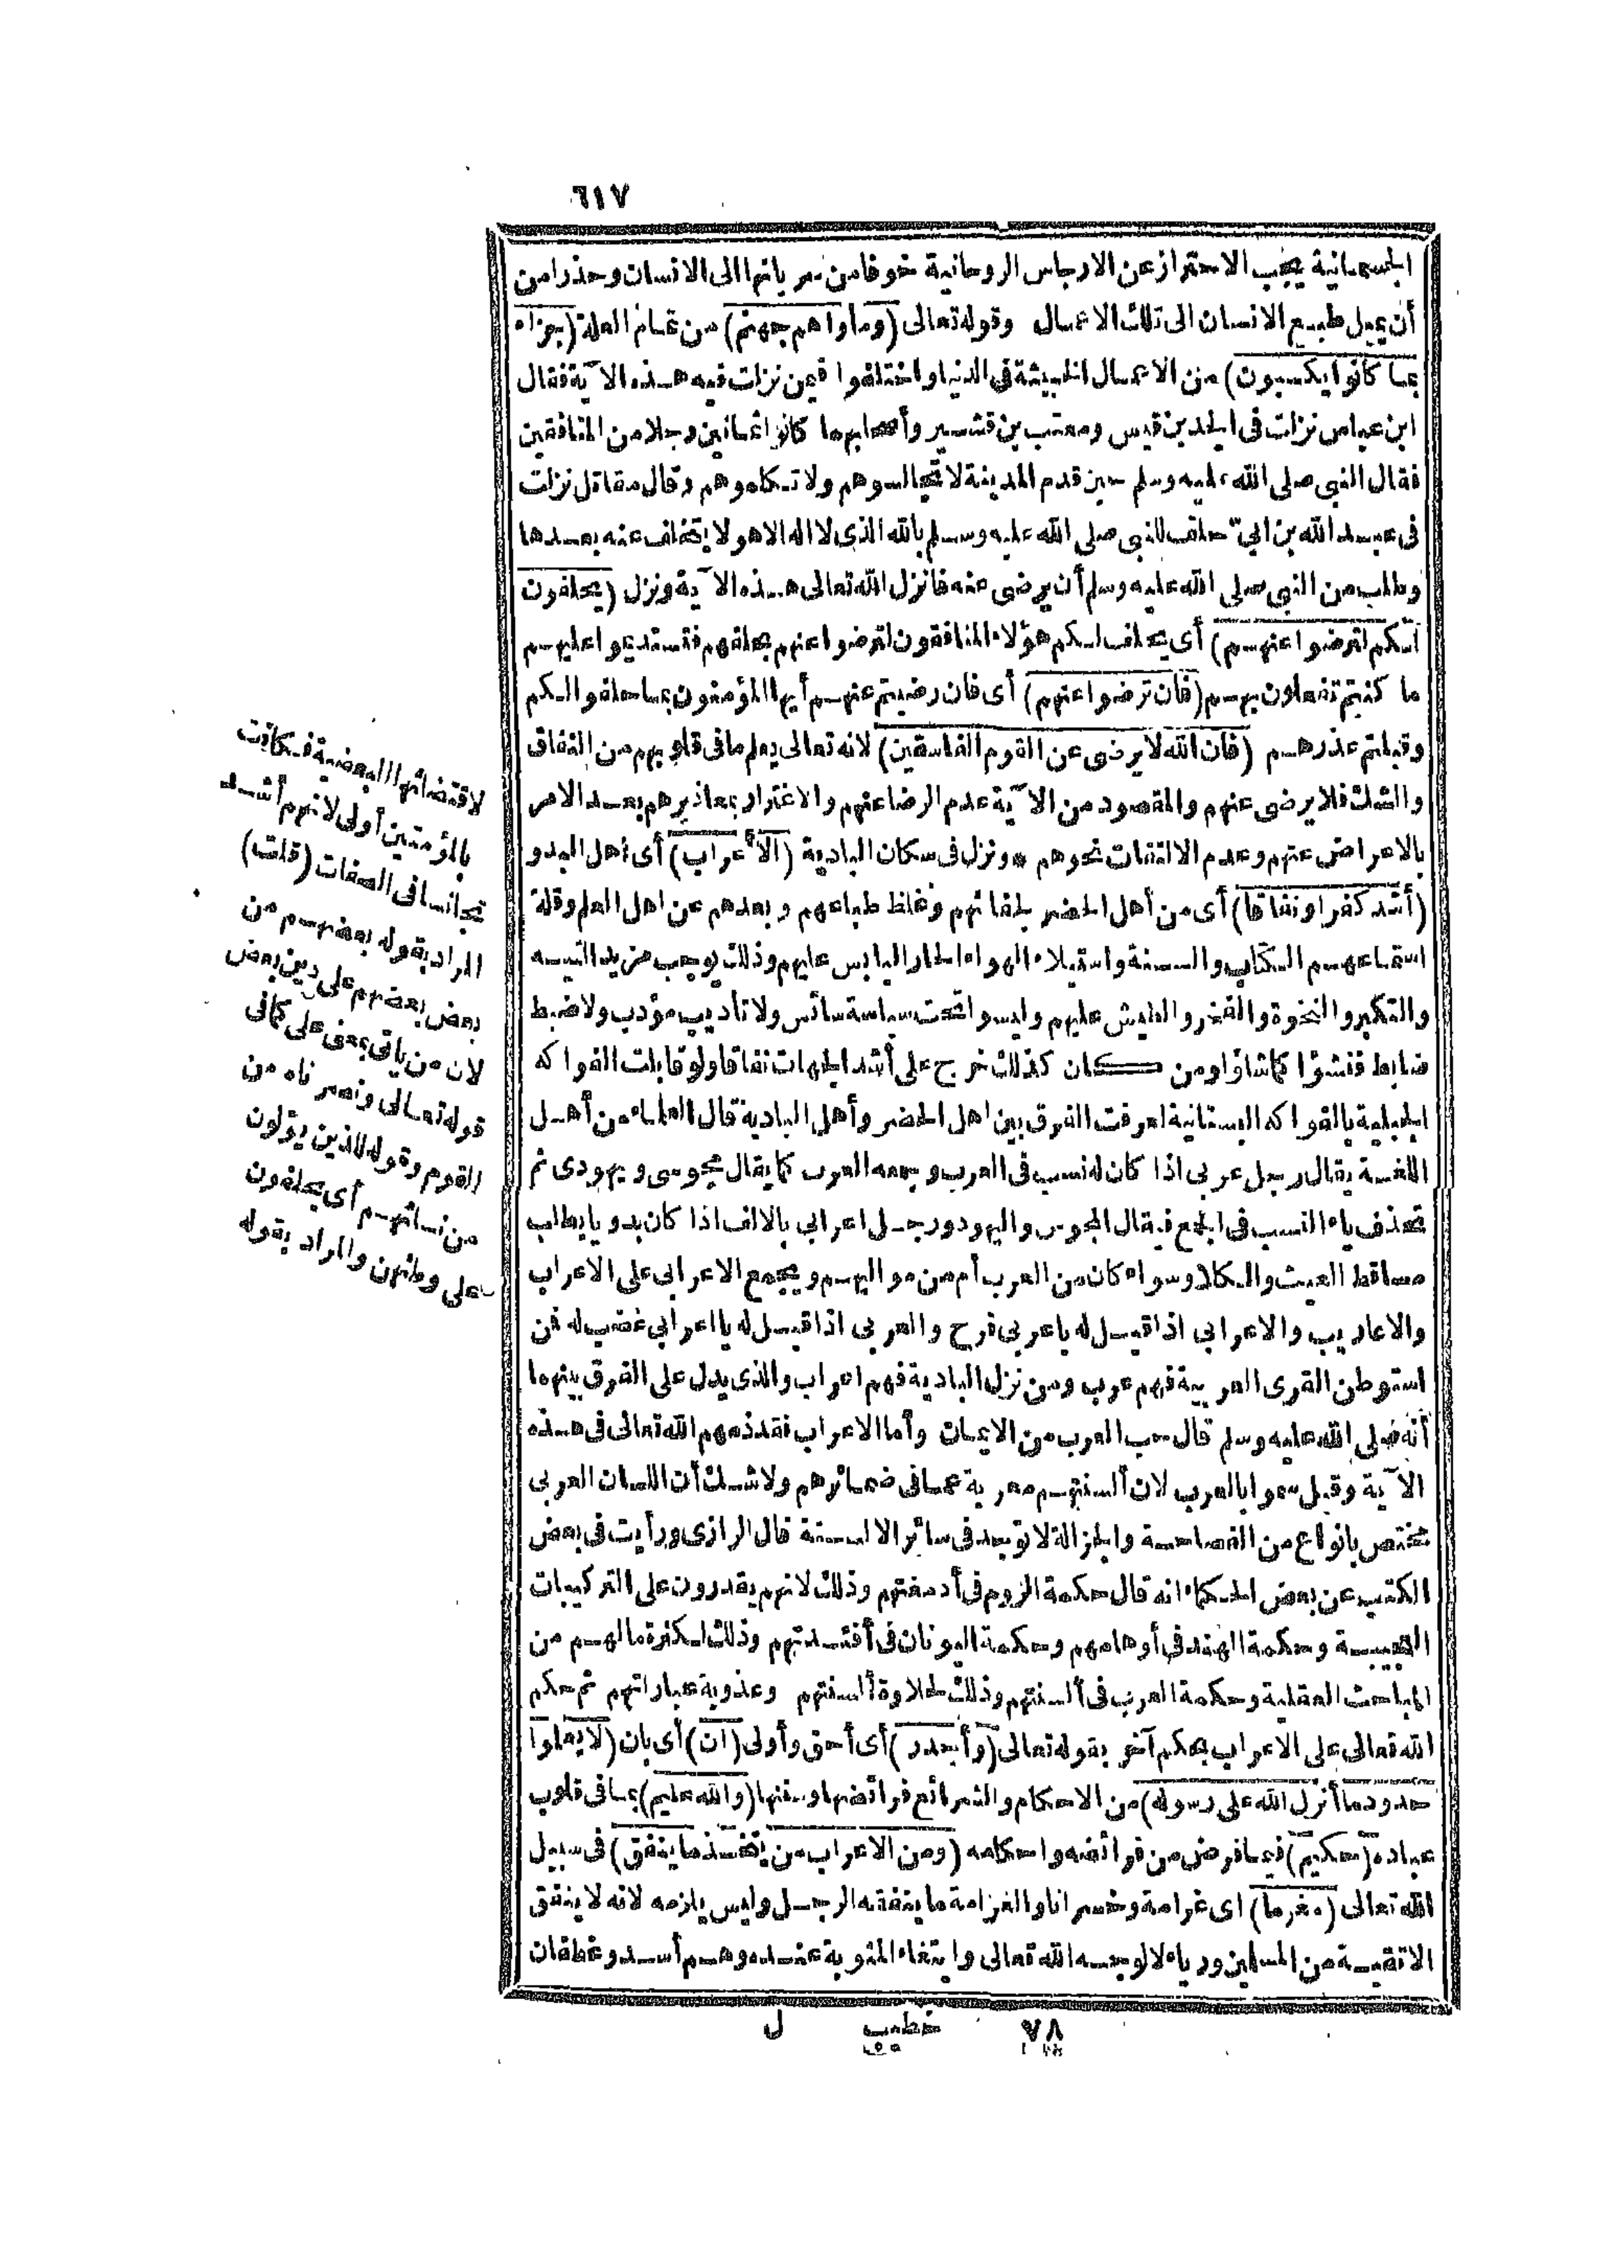 ٦١٧
الجسمانية يجب الاحتراز عن الارجاس الروحانية خوفا من سريانها الى الانسان وحذرا من
أن يميل طبع الانسان الى تلك الاعمال وقوله تعالى (ومأواهم جهنم) من تمام العلة (جزاء
بما كانوا يكسبون) من الاعمال الخبيثة في الدنيا واختلفوا فيمن نزلت فيه هذه الآية فقال
ابن عباس نزلت في الجد بن قيس ومعتب بن قشير وأصحابهما كانوا ثمانين رجلا من المنافقين
فقال النبي صلى الله عليه وسلم حين قدم المدينة لا تجالسوهم ولا تكلموهم وقال مقاتل نزلت
في عبد الله بن ابيّ حلف للنبي صلى الله عليه وسلم بالله الذي لا اله الا هو لا يتخلف عنه بعدها
وطلب من النبي صلى الله عليه وسلم أن يرضى عنه فانزل الله تعالى هذه الآية ونزل (يحلفون
لكم لترضوا عنهم) أى يحلف لكم هؤلاء المنافقون لترضوا عنهم بحلفهم فتستديموا عليهم
ما كنتم تفعلون بهم (فان ترضوا عنهم) أى فان رضيتم عنهم أيها المؤمنون بما حلفوا لكم
وقبلتم عذرهم (فان الله لا يرضى عن القوم الفاسقين) لانه تعالى يعلم ما في قلوبهم من النفاق
والشك فلا يرضى عنهم والمقصود من الآية عدم الرضا عنهم والاغترار بمعاذيرهم بعد الامر
بالاعراض عنهم وعدم الالتفات نحوهم * ونزل في سكان البادية (الأعراب) أى أهل البدو
(أشد كفرا ونفاقا) أى من أهل الحضر لجفائهم وغلظ طباعهم وبعدهم عن اهل العلم وقلة
استماعهم الكتاب والسنة واستيلاء الهواء الحار اليابس عليهم وذلك يوجب مزيد التيه
والتكبر والنخوة والفخر والطيش عليهم وليسوا تحت سياسة سائس ولا تأديب مؤدب ولا ضبط
ضابط فنشؤا كما شاؤا ومن كان كذلك خرج على أشد الجهات نفاقا ولو قابلت الفواكه
الجبلية بالفواكه البستانية لعرفت الفرق بين اهل الحضر وأهل البادية قال العلماء من أهل
اللغة يقال رجل عربى اذا كان له نسب في العرب وجمعه العرب كما يقال مجوسى ويهودى ثم
تحذف ياء النسب في الجمع فيقال المجوس واليهود ورجل اعرابى بالالف اذا كان بدويا يطلب
مساقط الغيث والكلا وسواء كان من العرب أم من مواليهم ويجمع الاعرابى على الاعراب
والاعاريب والاعرابى اذا قيل له يا عربى فرح والعربى اذا قيل له يا اعرابى غضب له فمن
استوطن القرى العربية فهم عرب ومن نزل البادية فهم اعراب والذى يدل على الفرق بينهما
أنه صلى الله عليه وسلم قال حب العرب من الايمان وأما الاعراب فقد ذمهم الله تعالى في هذه
الآية وقيل سموا بالعرب لان ألسنتهم معربة عما في ضمائرهم ولا شك أن اللسان العربى
مختص بانواع من الفصاحة والجزالة لا توجد في سائر الالسنة قال الرازى ورأيت في بعض
الكتب عن بعض الحكماء انه قال حكمة الروم في أدمغتهم وذلك لانهم يقدرون على التركيبات
العجيبة وحكمة الهند في أوهامهم وحكمة اليونان في أفئدتهم وذلك لكثرة ما لهم من
المباحث العقلية وحكمة العرب في ألسنتهم وذلك لحلاوة ألسنتهم وعذوبة عباراتهم ثم حكم
الله تعالى على الاعراب بحكم آخر بقوله تعالى (وأجدر) أى أحق وأولى (ان) أى بان (لا يعلموا
حدود ما أنزل الله على رسوله) من الاحكام والشرائع فرائضها وسننها (والله عليم) بما في قلوب
عباده (حكيم) فيما فرض من فرائضه واحكامه (ومن الاعراب من يتخذ ما ينفق) في سبيل
الله تعالى (مغرما) اى غرامة وخسرانا والغرامة ما ينفقه الرجل وليس يلزمه لانه لا ينفق
الا تقية من المسلمين ورياء لا لوجه الله تعالى وابتغاء المثوبة عنده وهم أسد وغطفان
لاقتضائها البعضية فكانت
بالمؤمنين أولى لانهم أشد
تجانسا في الصفات (قلت)
المراد بقوله بعضهم من
بعض بعضهم على دين بعض
لان من ياتى بمعنى على كما في
قوله تعالى ونصرناه من
القوم وقوله للذين يؤلون
من نسائهم أى يحلفون
على وطئهن والمراد بقوله
٧٨ خطيب ل